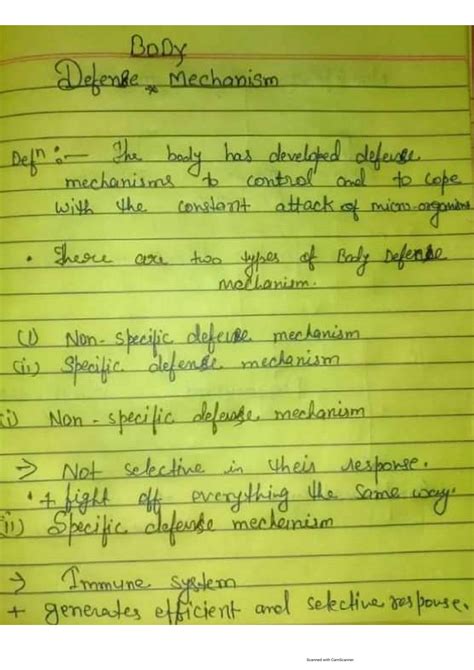 BODY
Defense * Mechanism
Defn :— The body has developed defense
mechanisms to control and to cope
with the constant attack of micro-organisms
• There are two types of Body Defense
mechanism.
(i) Non-specific defense mechanism
(ii) Specific defense mechanism
i) Non-specific defense mechanism
→ Not selective in their response.
• + fight off everything the same way.
(ii) Specific defense mechanism
→ Immune system
+ generates efficient and selective response.
Scanned with CamScanner